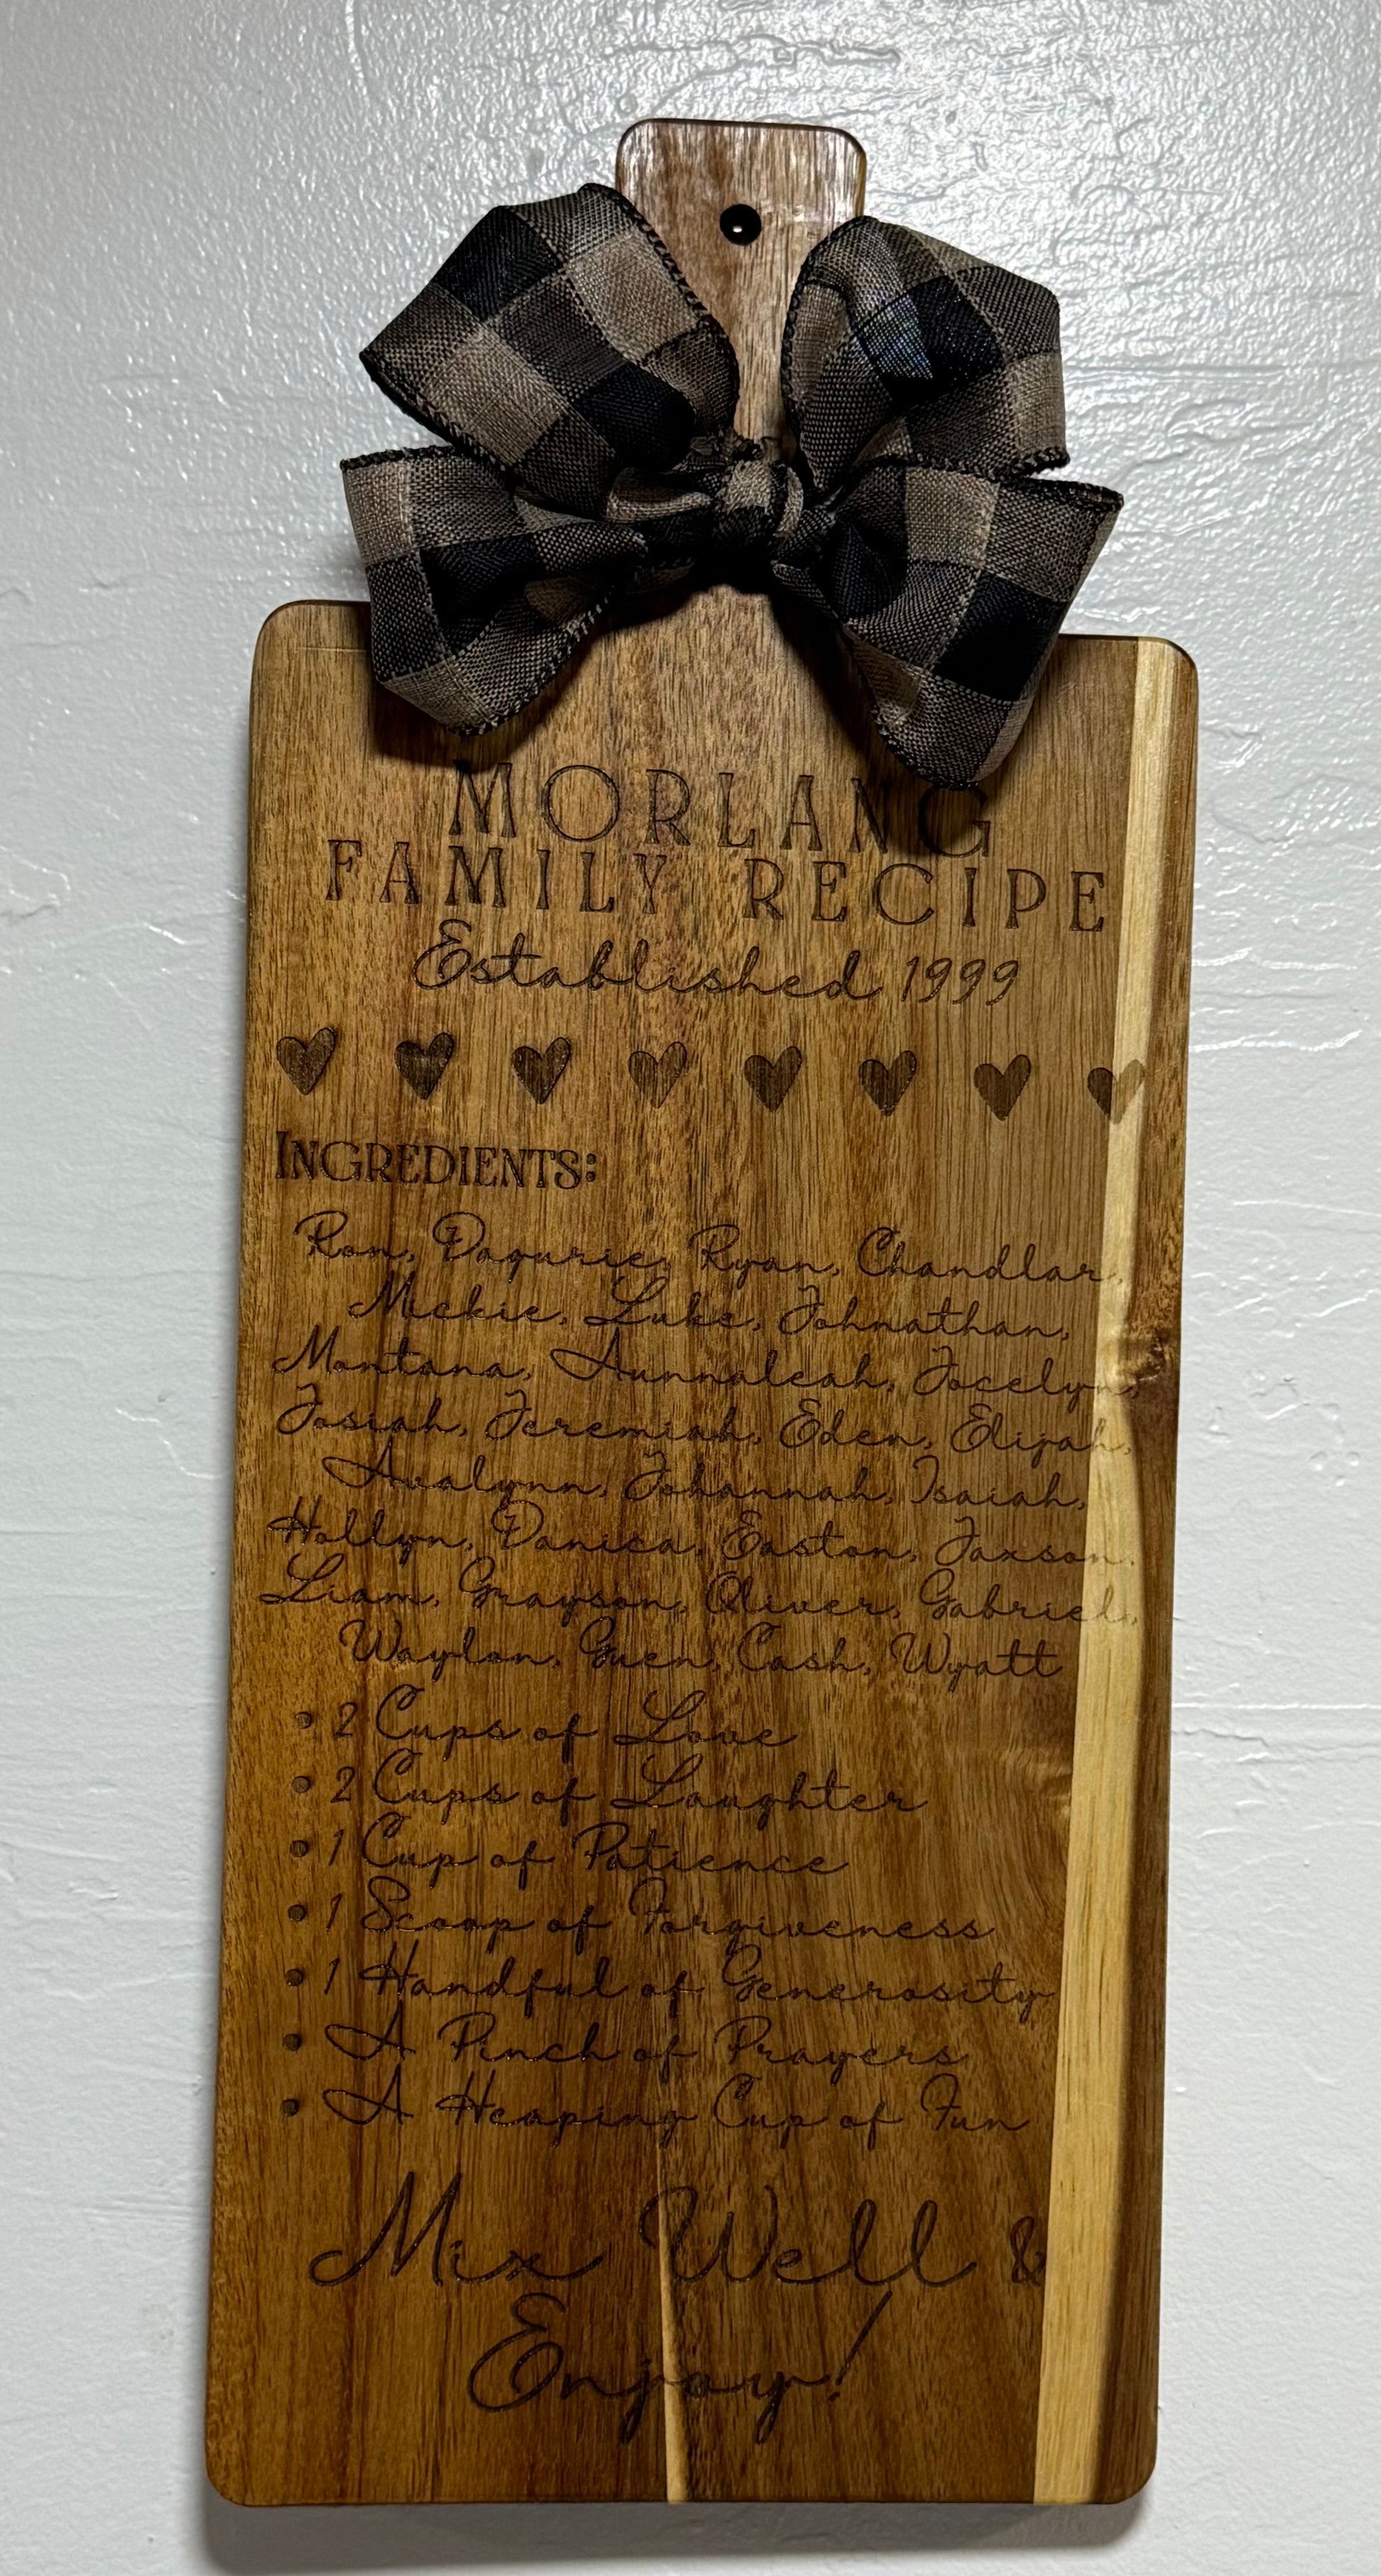 MORLANG
FAMILY RECIPE
Established 1999
INGREDIENTS:
Ron, Dagurie, Ryan, Chandlar,
Mickie, Luke, Johnathan,
Montana, Aunnaleah, Jocelyn,
Josiah, Jeremiah, Eden, Elijah,
Avalynn, Johannah, Isaiah,
Hollyn, Danica, Easton, Jaxson,
Liam, Grayson, Oliver, Gabriel,
Waylon, Guen, Cash, Wyatt
• 2 Cups of Love
• 2 Cups of Laughter
• 1 Cup of Patience
• 1 Scoop of Forgiveness
• 1 Handful of Generosity
• A Pinch of Prayers
• A Heaping Cup of Fun
Mix Well &
Enjoy!